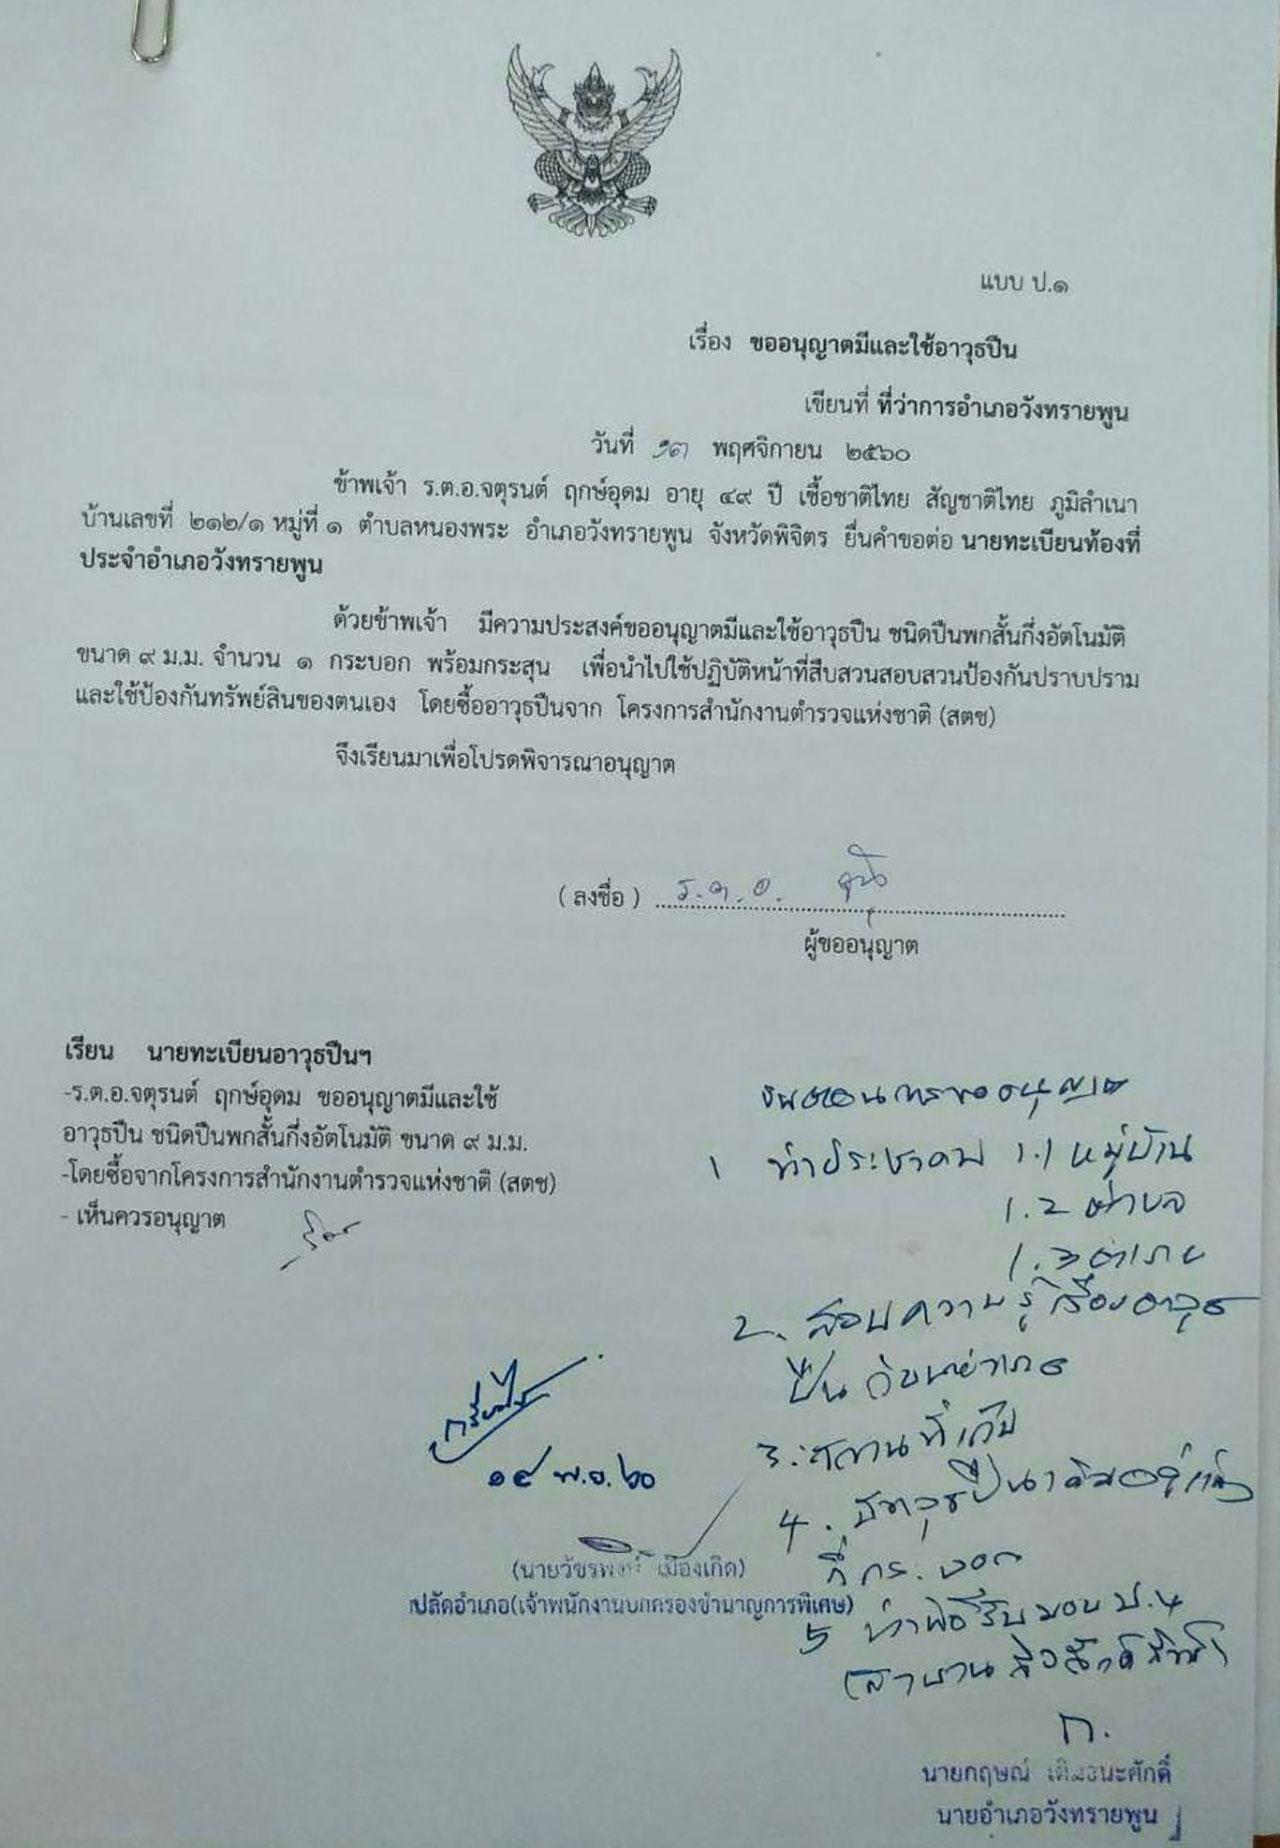 แบบ ป.๑
เรื่อง ขออนุญาตมีและใช้อาวุธปืน
เขียนที่ ที่ว่าการอำเภอวังทรายพูน
วันที่ ๑๓ พฤศจิกายน ๒๕๖๐
ข้าพเจ้า ร.ต.อ.จตุรนต์ ฤกษ์อุดม อายุ ๔๙ ปี เชื้อชาติไทย สัญชาติไทย ภูมิลำเนา
บ้านเลขที่ ๒๑๒/๑ หมู่ที่ ๑ ตำบลหนองพระ อำเภอวังทรายพูน จังหวัดพิจิตร ยื่นคำขอต่อ นายทะเบียนท้องที่
ประจำอำเภอวังทรายพูน
ด้วยข้าพเจ้า มีความประสงค์ขออนุญาตมีและใช้อาวุธปืน ชนิดปืนพกสั้นกึ่งอัตโนมัติ
ขนาด ๙ ม.ม. จำนวน ๑ กระบอก พร้อมกระสุน เพื่อนำไปใช้ปฏิบัติหน้าที่สืบสวนสอบสวนป้องกันปราบปราม
และใช้ป้องกันทรัพย์สินของตนเอง โดยซื้ออาวุธปืนจาก โครงการสำนักงานตำรวจแห่งชาติ (สตช)
จึงเรียนมาเพื่อโปรดพิจารณาอนุญาต
( ลงชื่อ ) ร.ต.อ.
ผู้ขออนุญาต
เรียน นายทะเบียนอาวุธปืนฯ
-ร.ต.อ.จตุรนต์ ฤกษ์อุดม ขออนุญาตมีและใช้
อาวุธปืน ชนิดปืนพกสั้นกึ่งอัตโนมัติ ขนาด ๙ ม.ม.
-โดยซื้อจากโครงการสำนักงานตำรวจแห่งชาติ (สตช)
- เห็นควรอนุญาต
๑๔ พ.ย. ๖๐
(นายวัชรพงศ์ เมืองเกิด)
ปลัดอำเภอ(เจ้าพนักงานปกครองชำนาญการพิเศษ)
ขั้นตอนการขออนุญาต
1 ทำประชาคม 1.1 หมู่บ้าน
1.2 ตำบล
1.3 อำเภอ
2. สอบความรู้เรื่องอาวุธ
ปืนกับนายอำเภอ
3. สถานที่เก็บ
4. มีอาวุธปืนเดิมอยู่แล้ว
กี่กระบอก
5 ทำพิธีรับมอบ ป.4
(สาบานสิ่งศักดิ์สิทธิ์)
นายกฤษณ์
นายอำเภอวังทรายพูน